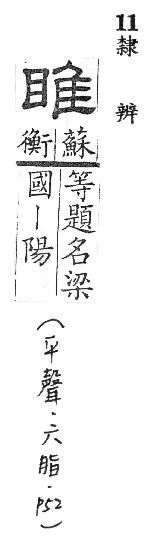 11 隸辨
睢
蘇
衡
等題名梁
國丨陽
(平聲·六脂·P52)